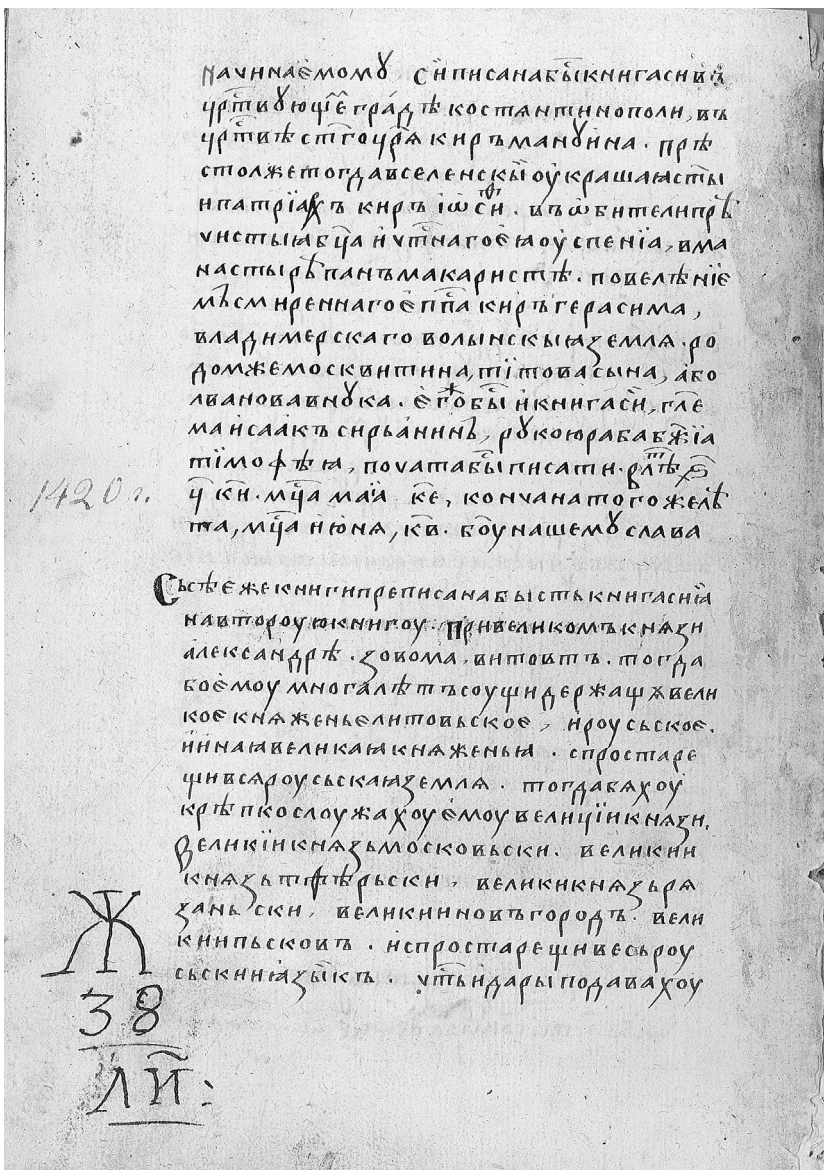 начинаемомꙋ сиписанабы̑книгасивъ
цр҃твꙋющеⷨградѣкостянтинополи, въ
цр҃твѣст҃гоцр҃ѧкиръманꙋина. прѣ
столжетогдавселенскыиоукрашаѧст҃ы
ипатріархъ киръ іѡсиⷴ. въѡбителипрѣ
чистыѧбц҃аичт҃нагоеѧоуспенїа, вма
настырѣпанъмакаристѣ. повелѣнїе
мъсмиреннагоеп҃па киръгерасима,
владимерскаговолынскыꙗземля. ро
домжемосквитина, тітовасына, або
лвановавнꙋка. егѡбы̑икнигаси, гл҃е
маисаакъсирьанинъ, рꙋкоюрабабж҃їа
тімофѣѧ, початабы̑писати. влⷮѣ ҂ѕ҃
ц҃ к҃и. мц҃амаіа к҃е, кончанатогожелѣ
та, мц҃аиюня, к҃в. бг҃оунашемꙋслава
Съсѣежекнигипреписанабыстькнигасиꙗ
навтороуюкнигоу. привеликомъкнязи
александрѣ. зовома, витовтъ. тогда
боемоумногалѣтъсоущидержащѫвели
коекняженьелитовьское, ироусьское.
ииннаꙗвеликаꙗкняженьꙗ. спростаре
щивсяроусьскаꙗземля. тогдабяхоу
крѣпкослоужахоуемоувелиціикнязи.
великїикнязьмосковьски. великии
князьтфѣрьски, великикнязьря
заньски, великииновъгородъ. вели
киипьсковъ. испростарещивесьроу
сьскииꙗзыкъ. чт҃ьидарыподавахоу
1420 г.
Ж
38
ЛИ҃: